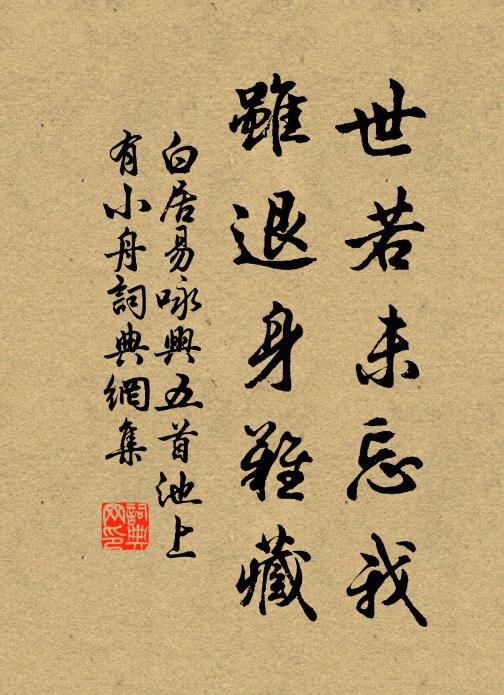 世若未忘我
雖退身難藏
白居易咏興五首池上
有小舟詞典網集
詞典
网印